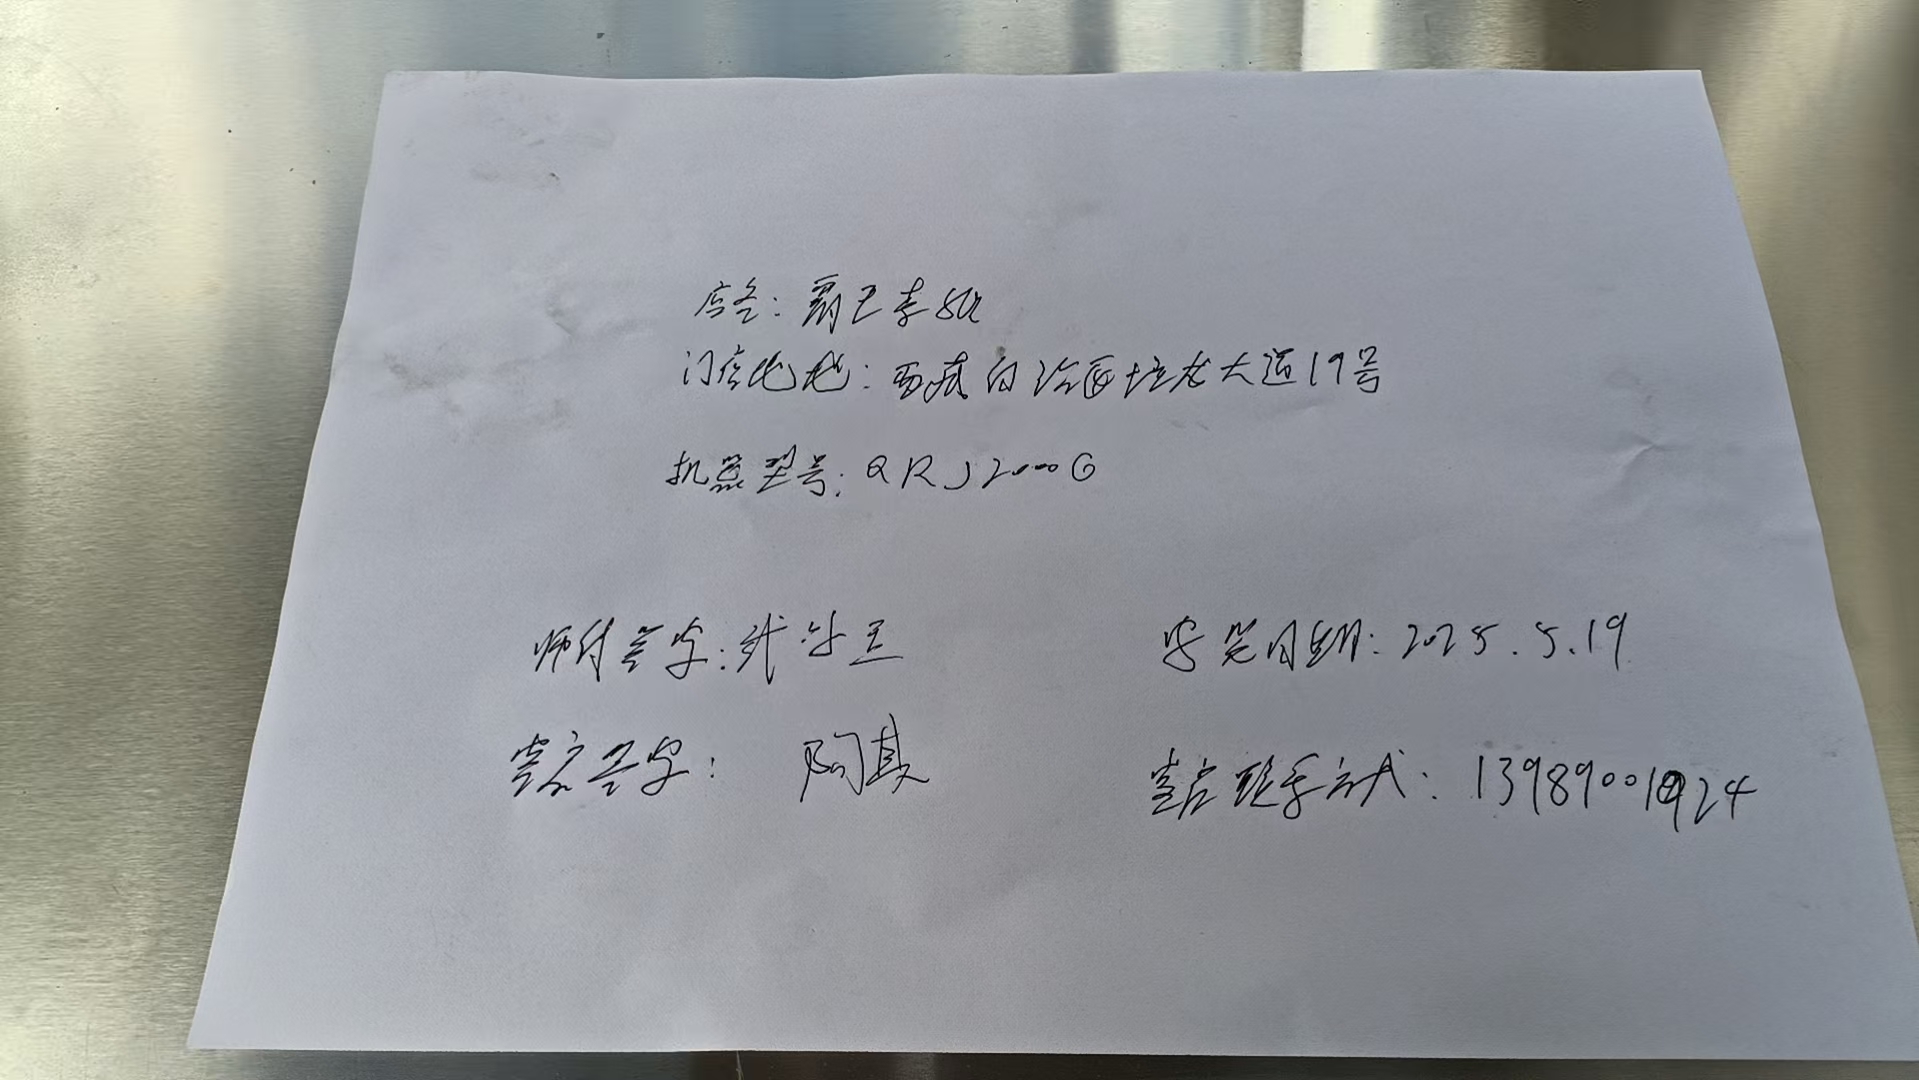 店名：霸王茶姬
门店地址：西藏自治区拉龙大道19号
机器型号：QRJ2000G
师付签字：
安装日期：2025.5.19
客户签字：陶其
客户联系方式：13989001924